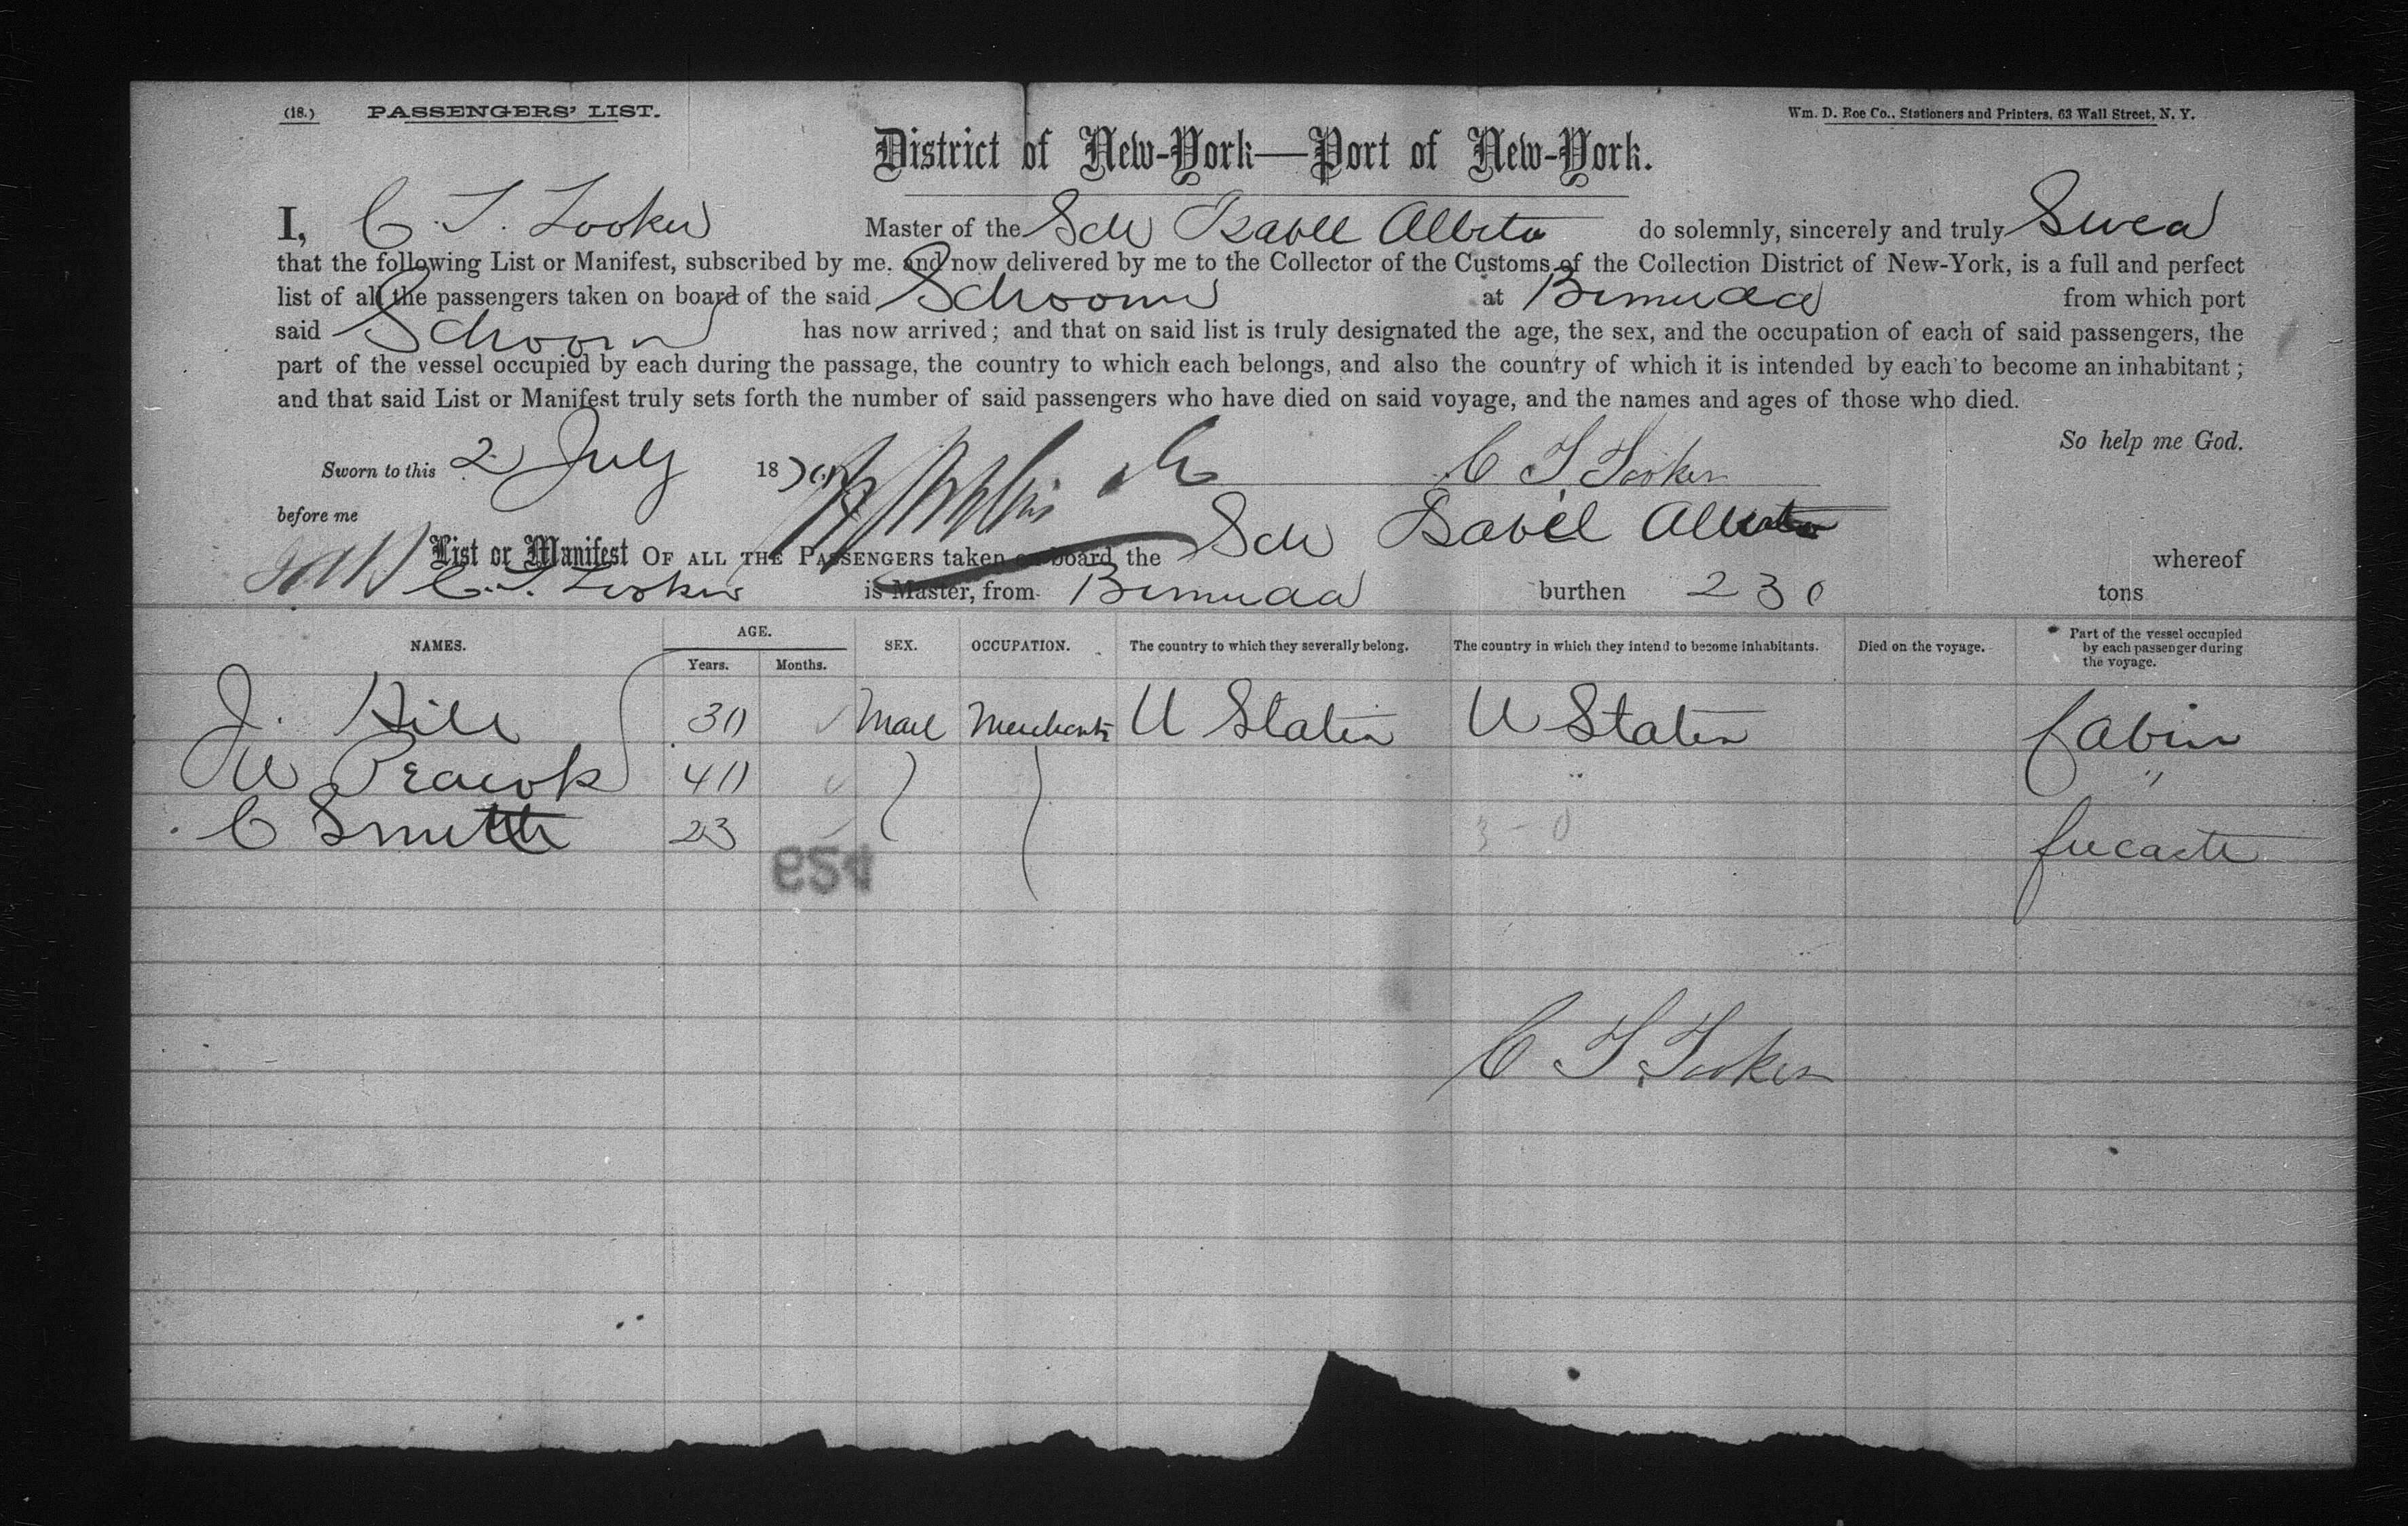 (18.) PASSENGERS' LIST. Wm. D. Roe Co., Stationers and Printers, 63 Wall Street, N. Y.
District of New-York—Port of New-York.
I, C. T. Tooker Master of the Sch Isabel Alberto do solemnly, sincerely and truly Swear
that the following List or Manifest, subscribed by me, and now delivered by me to the Collector of the Customs of the Collection District of New-York, is a full and perfect
list of all the passengers taken on board of the said Schooner at Bermuda from which port
said Schooner has now arrived; and that on said list is truly designated the age, the sex, and the occupation of each of said passengers, the
part of the vessel occupied by each during the passage, the country to which each belongs, and also the country of which it is intended by each to become an inhabitant;
and that said List or Manifest truly sets forth the number of said passengers who have died on said voyage, and the names and ages of those who died.
So help me God.
Sworn to this 2 July 18 C T Tooker
before me
List or Manifest OF ALL THE PASSENGERS taken on board the Sch Isabel Alberto whereof
C. T. Tooker is Master, from Bermuda burthen 230 tons
NAMES. AGE. Years. Months. SEX. OCCUPATION. The country to which they severally belong. The country in which they intend to become inhabitants. Died on the voyage. Part of the vessel occupied by each passenger during the voyage.
J. Hill 30 Male Merchants U States U States Cabin
W Peacok 40 " "
C Smith 23
C T Tooker